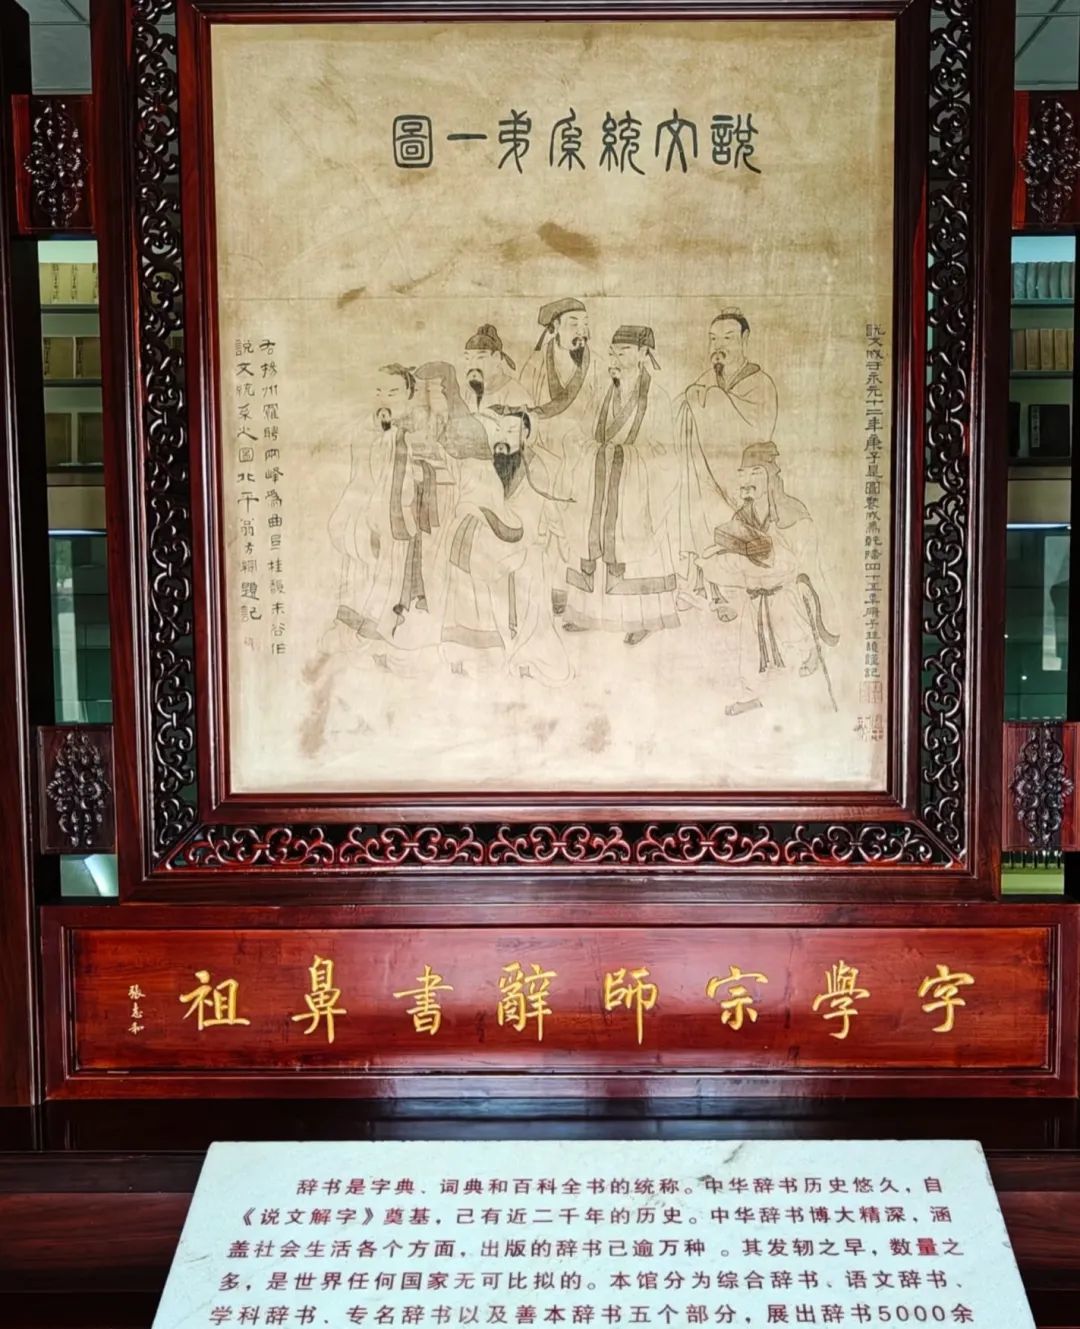 說文統系弟一圖
說文成于永元十二年庚子是圖製成為乾隆四十五年庚子桂馥謹記
右揚州羅聘兩峰為曲阜桂馥未谷作
說文統系之圖北平翁方綱題記
字學宗師辭書鼻祖
張志和
辞书是字典、词典和百科全书的统称。中华辞书历史悠久，自
《说文解字》奠基，已有近二千年的历史。中华辞书博大精深，涵
盖社会生活各个方面，出版的辞书已逾万种 。其发轫之早，数量之
多，是世界任何国家无可比拟的。本馆分为综合辞书、语文辞书、
学科辞书、专名辞书以及善本辞书五个部分，展出辞书5000余